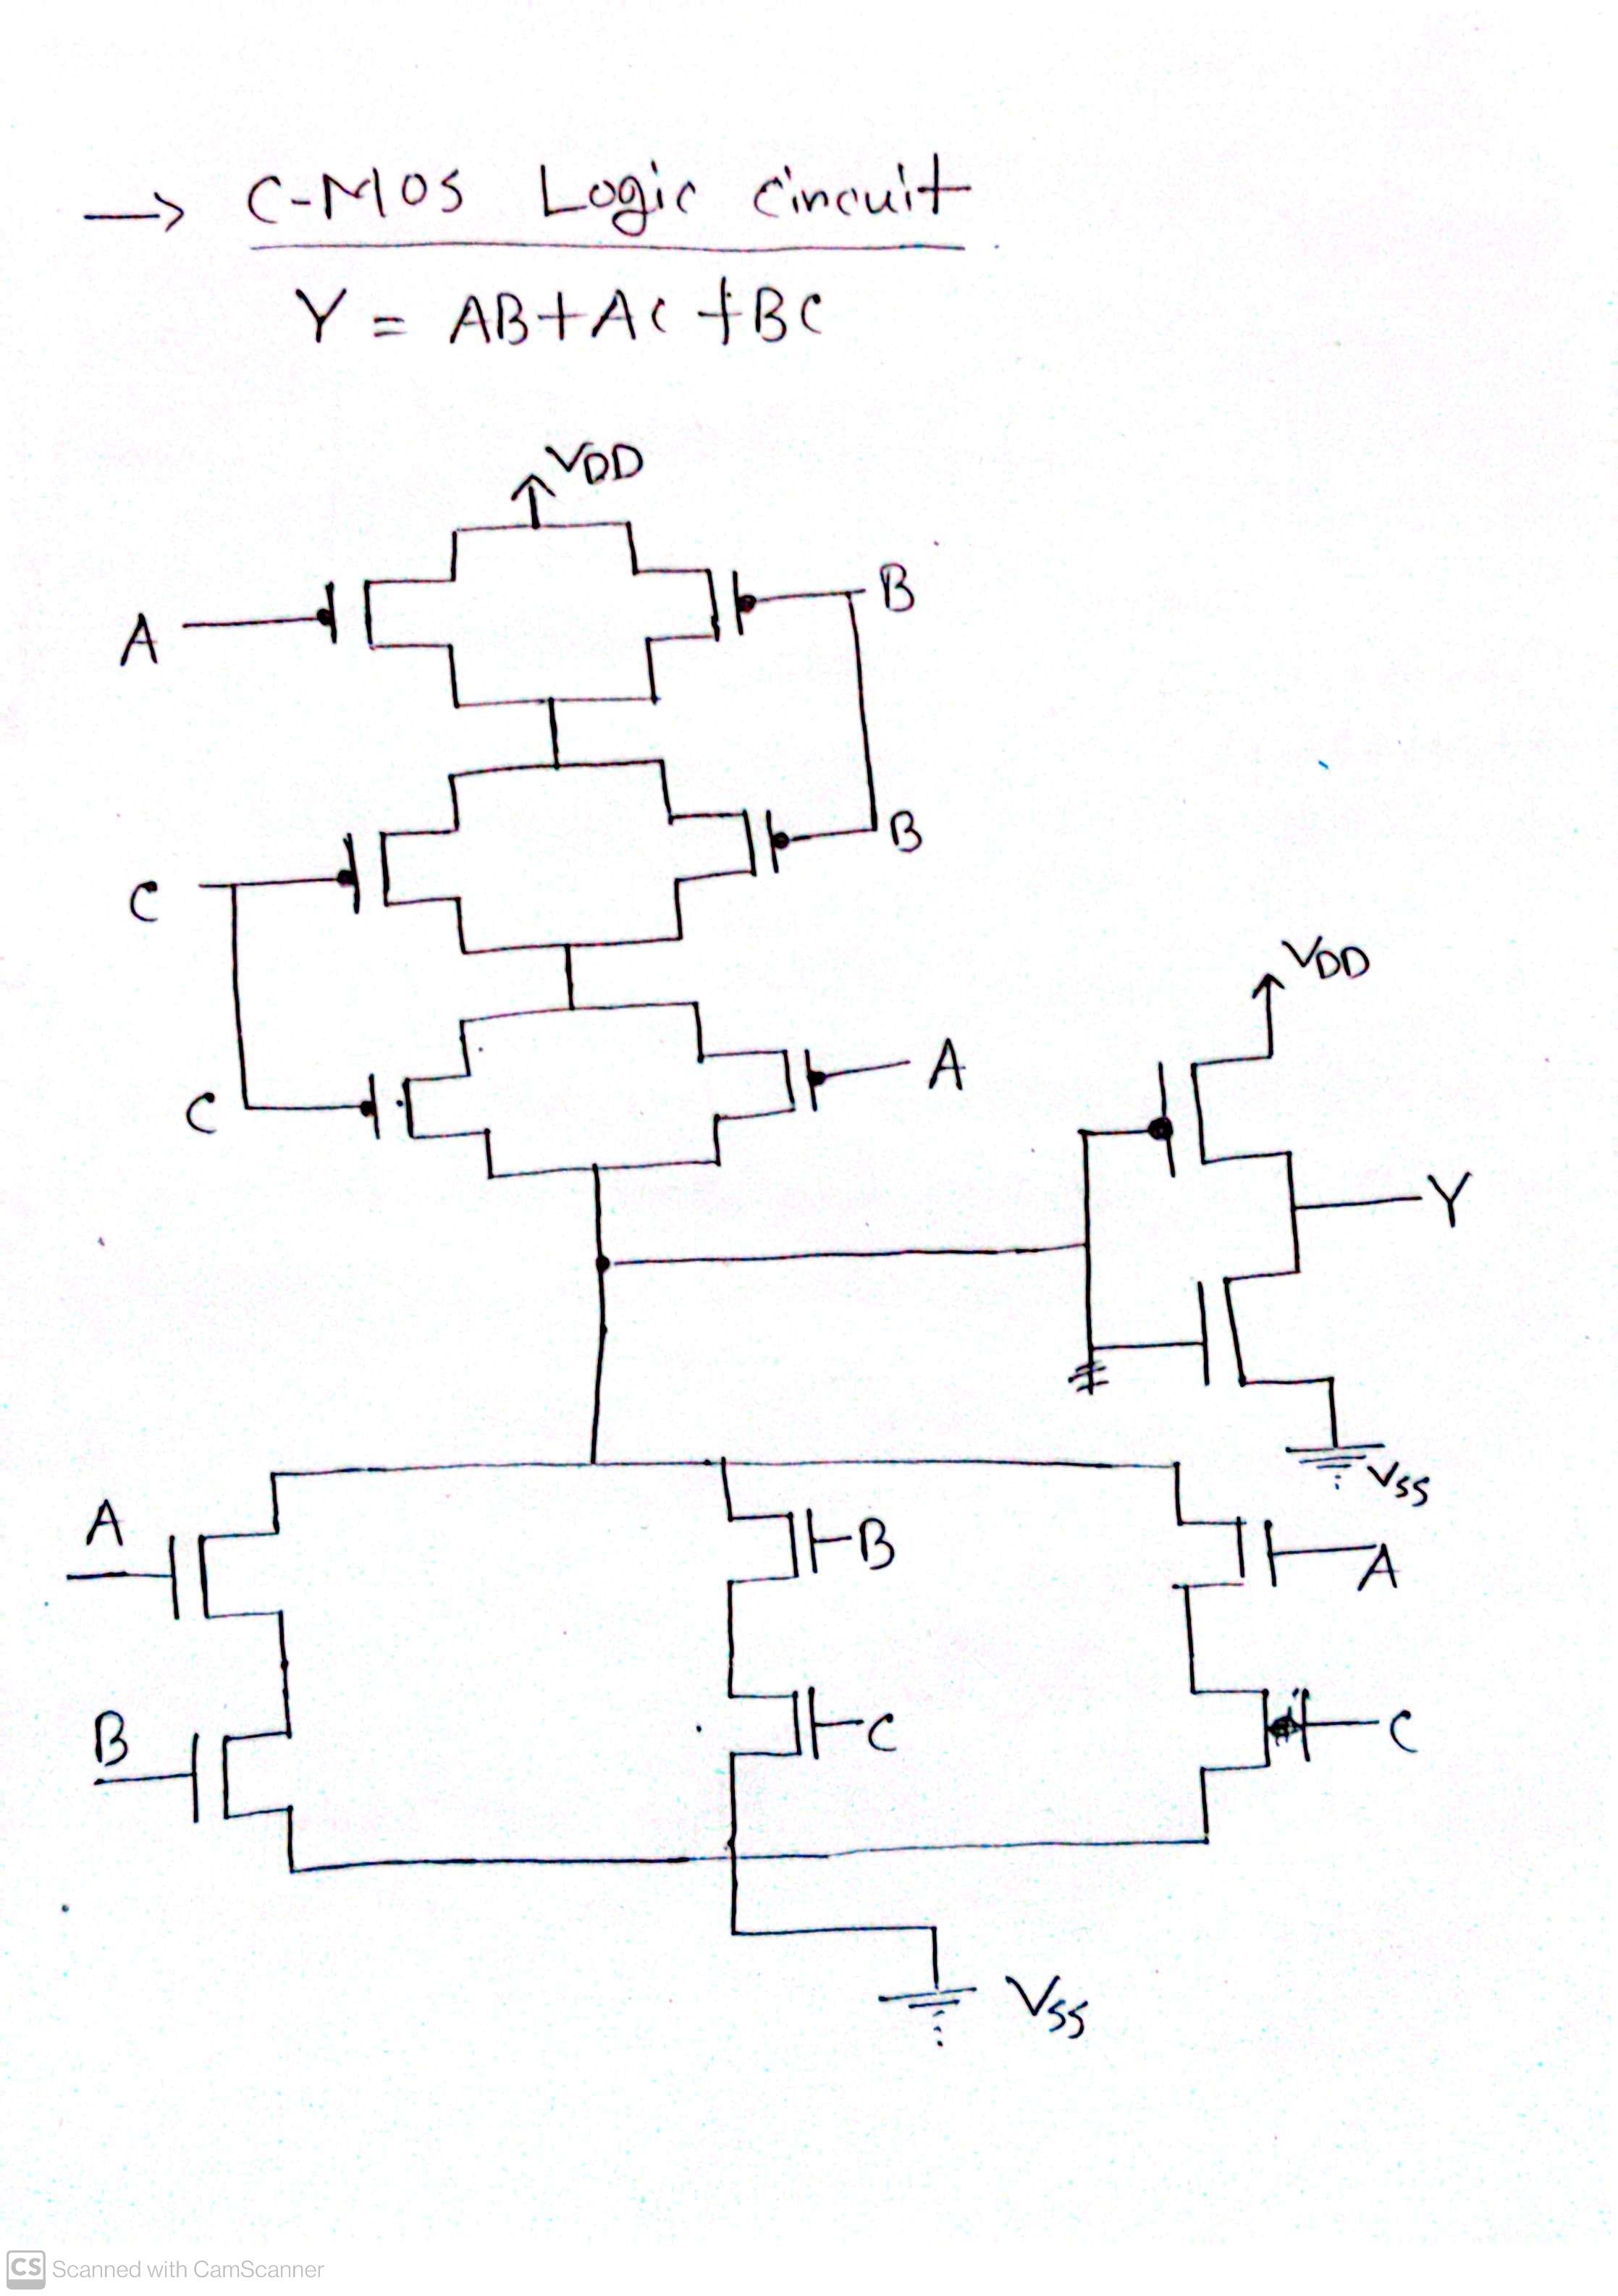 → C-MOS Logic Circuit
Y = AB+AC+BC
VDD
A
B
C
B
C
A
VDD
Y
VSS
A
B
A
B
C
C
VSS
CS Scanned with CamScanner